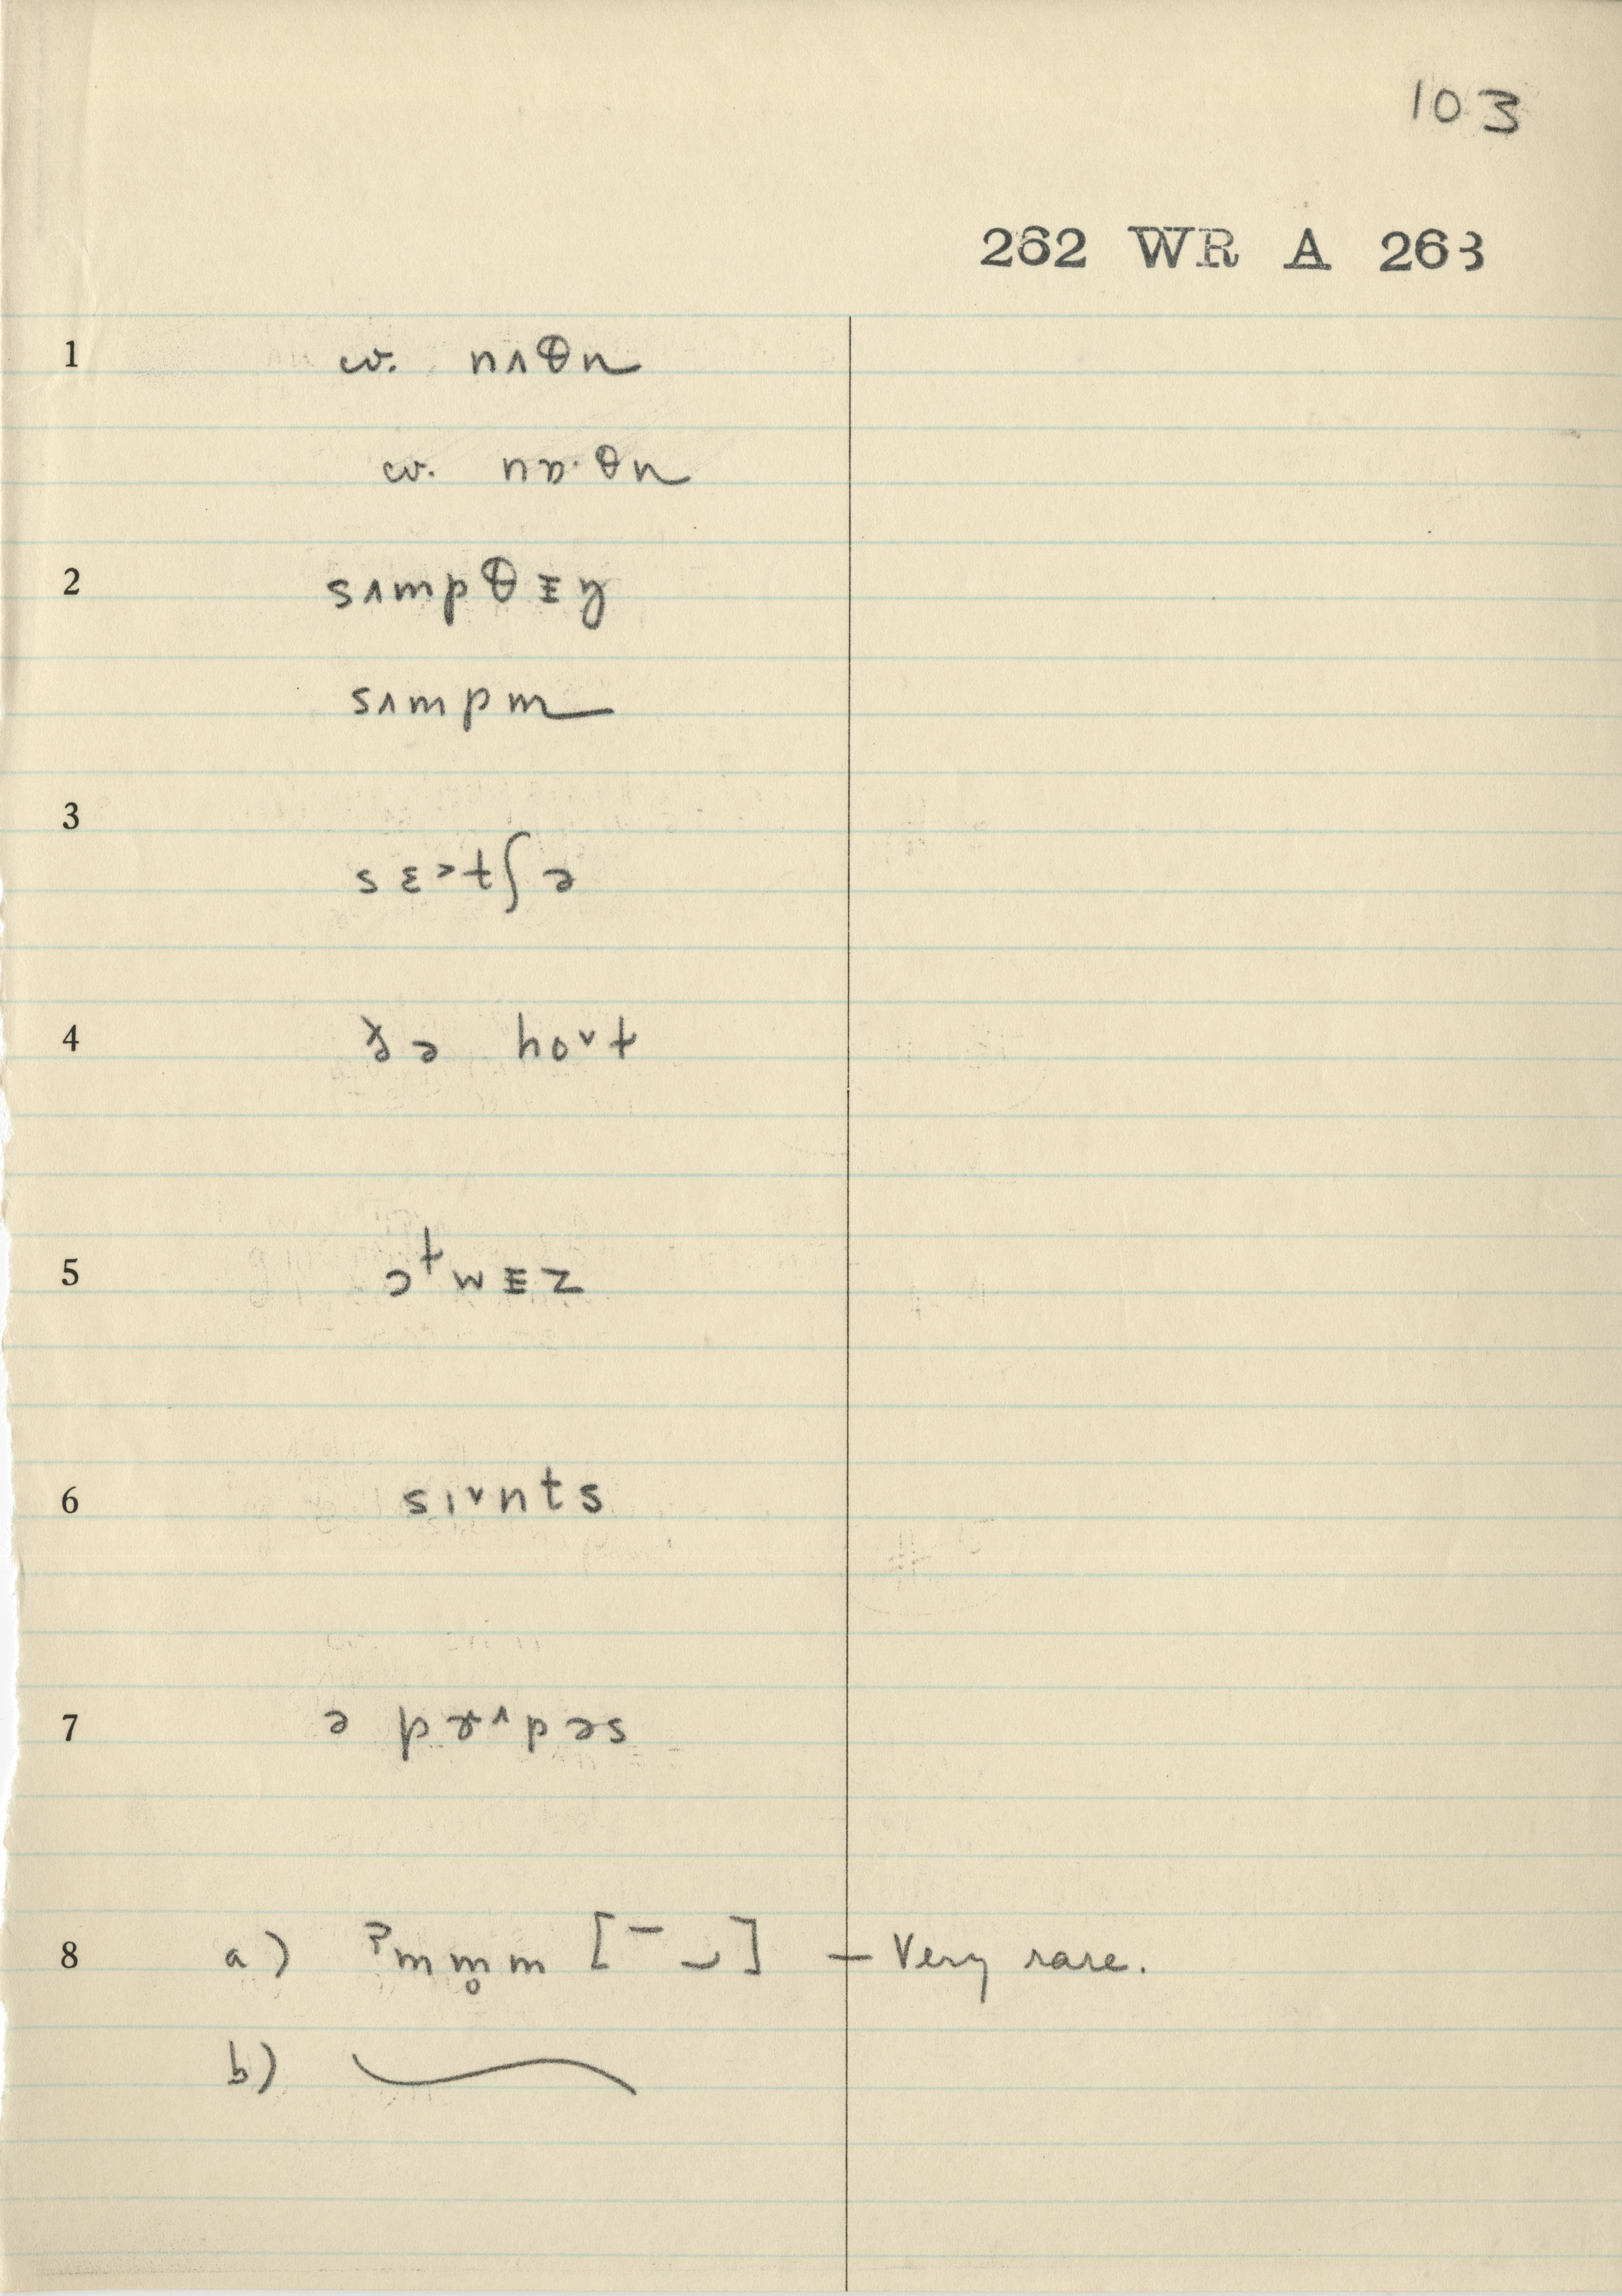 103
262 WR A 263
1 w. nʌθn
w. nɒ·θn
2 sʌmpθɪy
sʌmpm
3 sɛ˃t∫ə
4 ɚə ho˅t
5 ɔᵗwɪz
6 sı˅nts
7 ə pɚ˄pəs
8 a) ʔmm̥m [¯ ⌣] — Very rare.
b)